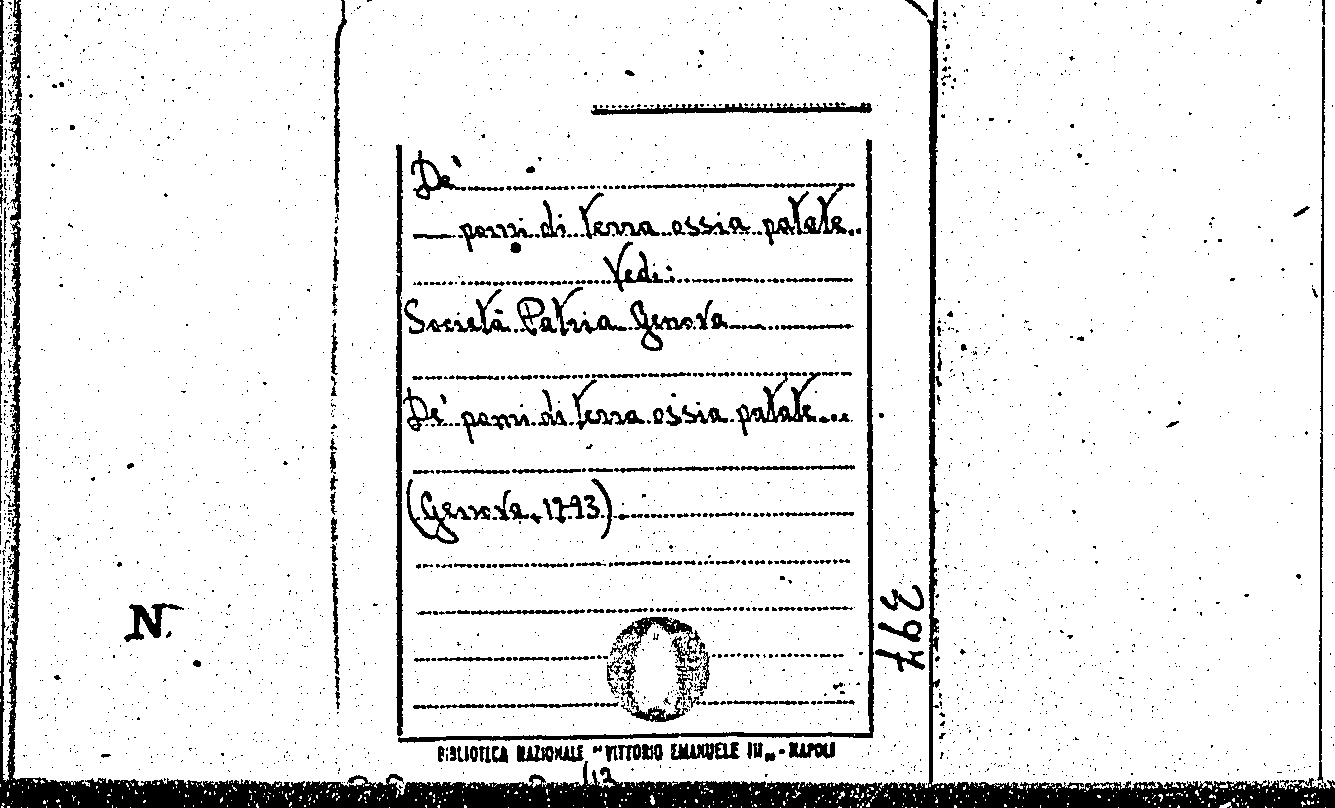 De'
— pomi di terra ossia patate..
Vedi:
Società Patria Genova
De' pomi di terra ossia patate...
(Genova, 1793).
N.
394
BIBLIOTECA NAZIONALE "VITTORIO EMANUELE III„ - NAPOLI